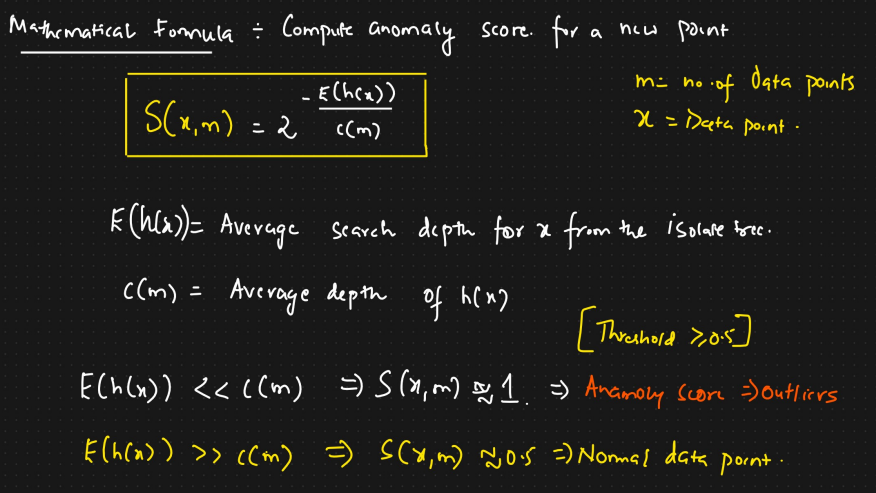 Mathematical Formula ÷ Compute anomaly score. for a new point
S(x,m) = 2^(-E(h(x))/c(m))
m = no. of Data points
x = Data point.
E(h(x)) = Average search depth for x from the isolate tree.
c(m) = Average depth of h(x)
[Threshold ≥0.5]
E(h(x)) << c(m) ⇒ S(x,m) ≈ 1. ⇒ Anamoly score ⇒ Outliers
E(h(x)) >> c(m) ⇒ S(x,m) ≈ 0.5 ⇒ Normal data point.